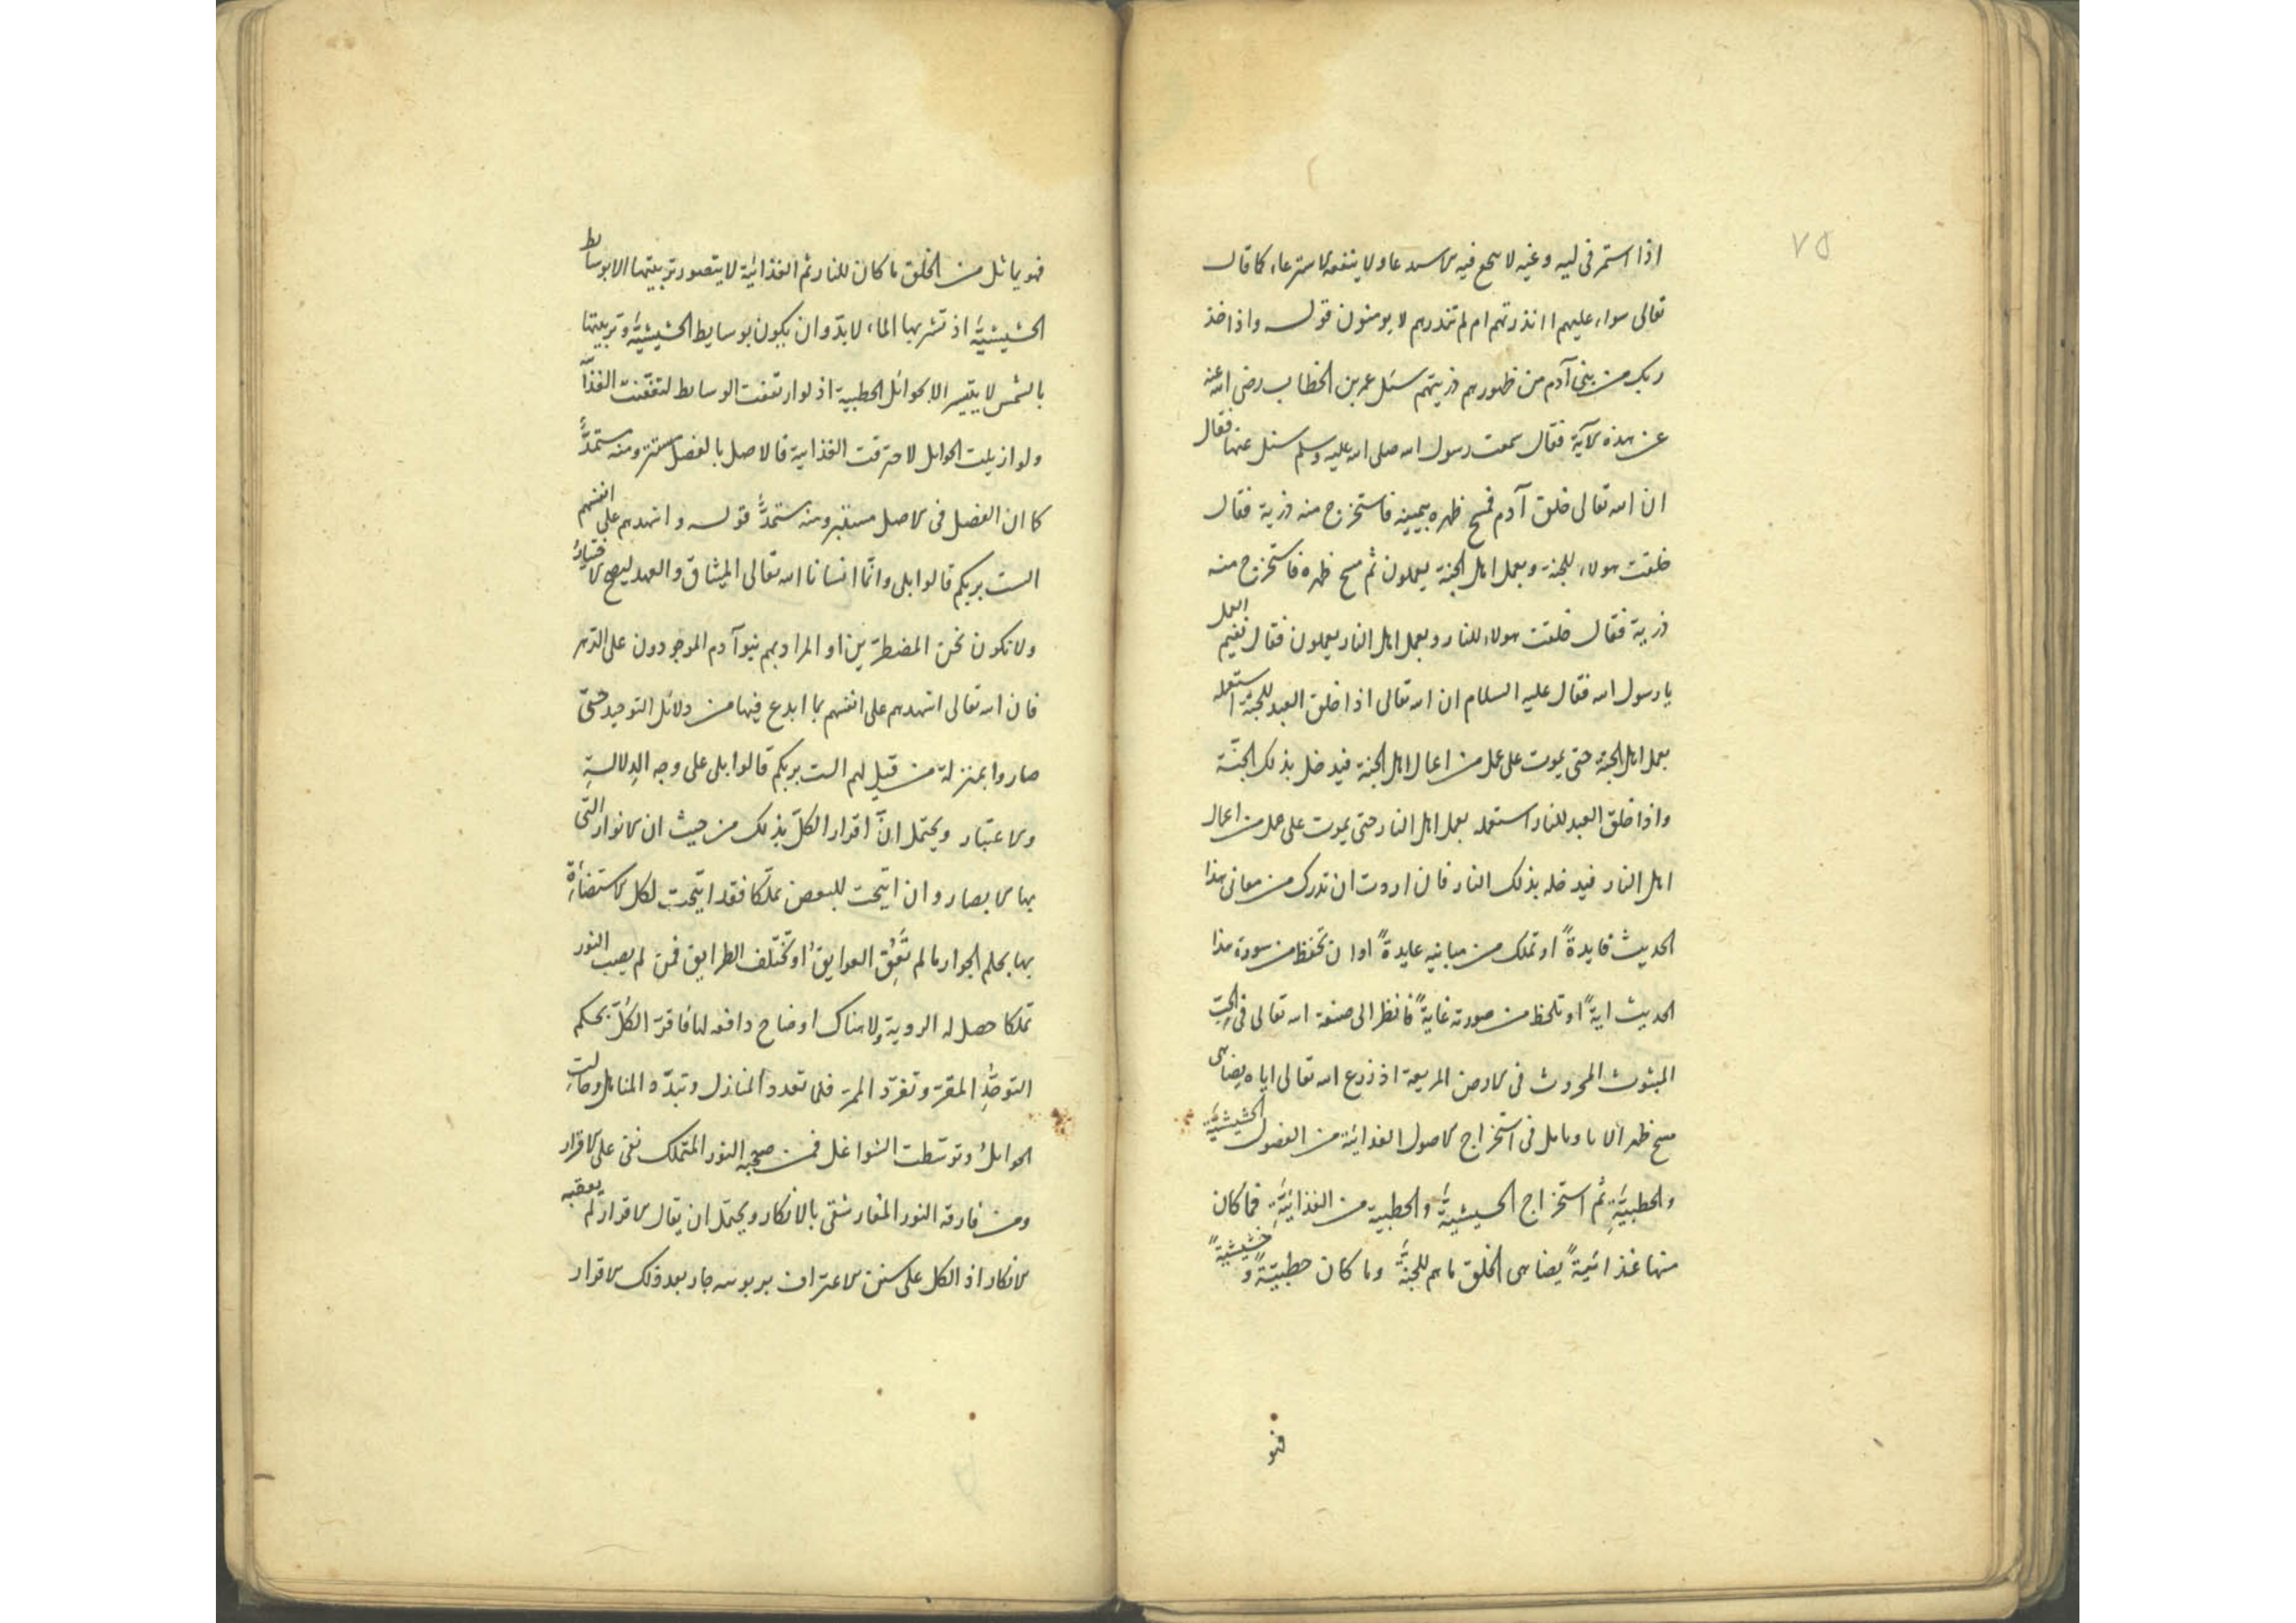 ٧٥
اذا استمر فى ليه وغيه لا ينجع فيه الاستدعا ولا ينفعه الاسترعاء كما قال
تعالى سواء عليهم اانذرتهم ام لم تنذرهم لا يومنون قوله واذ اخذ
ربك من بنى آدم من ظهورهم ذريتهم سئل عمر بن الخطاب رضى الله عنه
عن هذه الآية فقال سمعت رسول الله صلى الله عليه وسلم سئل عنها فقال
ان الله تعالى خلق آدم فمسح ظهره بيمينه فاستخرج منه ذرية فقال
خلقت هولاء للجنة وبعمل اهل الجنة يعملون ثم مسح ظهره فاستخرج منه
ذرية فقال خلقت هولاء للنار وبعمل اهل النار يعملون فقال ففيم العمل
يا رسول الله فقال عليه السلام ان الله تعالى اذا خلق العبد للجنة استعمله
بعمل اهل الجنة حتى يموت على عمل من اعمال اهل الجنة فيدخل بذلك الجنّة
واذا خلق العبد للنار استعمله بعمل اهل النار حتى يموت على عمل من اعمال
اهل النار فيدخله بذلك النار فان اردت ان تدرك من معانى هذا
الحديث فايدةً او تملك من مبانيه عايدةً او ان تحفظ من سورة هذا
الحديث ايةً او تلحظ من صورته غايةً فانظر الى صنعة الله تعالى فى الحبّ
المبثوث المحروث فى الارض المريعة اذ زرع الله تعالى اياه يضاهى
مسح ظهر الا با وتامل فى استخراج الاصول الغذائية من الفضول الحشيشيّة
والحطبيّةِ ثم استخراج الحشيشيةَ والحطبية من الغذائيّةِ فما كان
منها غذائيةً يضاهى الخلق ما هم للجنةَ وما كان حطبيّةً و حشيشيةً
فهو
فهو يماثل من الخلق ما كان للنار ثم الغذائية لا يتصور تربيتها الا بوسايط
الحشيشيّةَ اذ تشربها الماء لابدّ وان يكون بوسايط الحشيشيّةَ وتربيتها
بالشمس لا يتيسر الا بحوائل الحطبية اذ لو ارتفعت الوسايط لتعفّنت الغذآ
ولو ازيلت الحوايل لاحترقت الغذايية فالاصل بالفضل مستتر ومنه مستمدٌّ
كما ان الفضل فى الاصل مستتر ومنه مستمدٌّ قوله واشهدهم على انفسهم
الست بربكم قالوا بلى وانّما انسانا الله تعالى الميثاق والعهد ليصح الاختيارُ
ولا نكون نحن المضطرّين او المراد بهم بنو آدم الموجودون على الدّهر
فان الله تعالى اشهدهم على انفسهم بما ابدع فيها من دلائل التوحيد حتى
صاروا بمنزلة من قيل لهم الست بربكم قالوا بلى على وجه الدِلالةِ
والاعتبار ويحتمل انّ اقرار الكلّ بذلك من حيث ان الانوار التى
بها الابصار وان اتيحت للبعض تملّكا فقد اتيحت لكل الاستضاءة
بها بحكم الجوار ما لم تَعُقِ العوايقُ او تختلف الطرايق فمن لم يصب النور
تملكا حصل له الروية ولا هناك اوضاح دافعه لها فاقرّ الكلّ بحكم
التوحّدِ المقرّ وتفرّد الممرّ فلما تعدد المنازل وتبدّد المناهل وحالت
الحوايلُ وتوسّطت الشواغل فمن صحبه النور المتملك بقى على الاقرار
ومن فارقه النور المعار شقى بالانكار ويحتمل ان يقال الاقرار لم يعقبه
الانكار اذ الكل على سنن الاعتراف بربوبيته جار بعد ذلك الاقرار